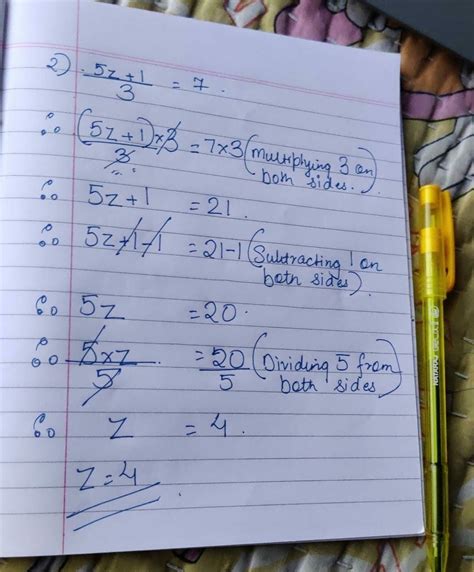 2) 5z+1/3 = 7.
∴ (5z+1)×3/3 = 7×3 (Multiplying 3 on both sides.)
∴ 5z+1 = 21.
∴ 5z+1-1 = 21-1 (Subtracting 1 on both sides)
∴ 5z = 20.
∴ 5×z/5 = 20/5 (Dividing 5 from both sides)
∴ z = 4.
z=4